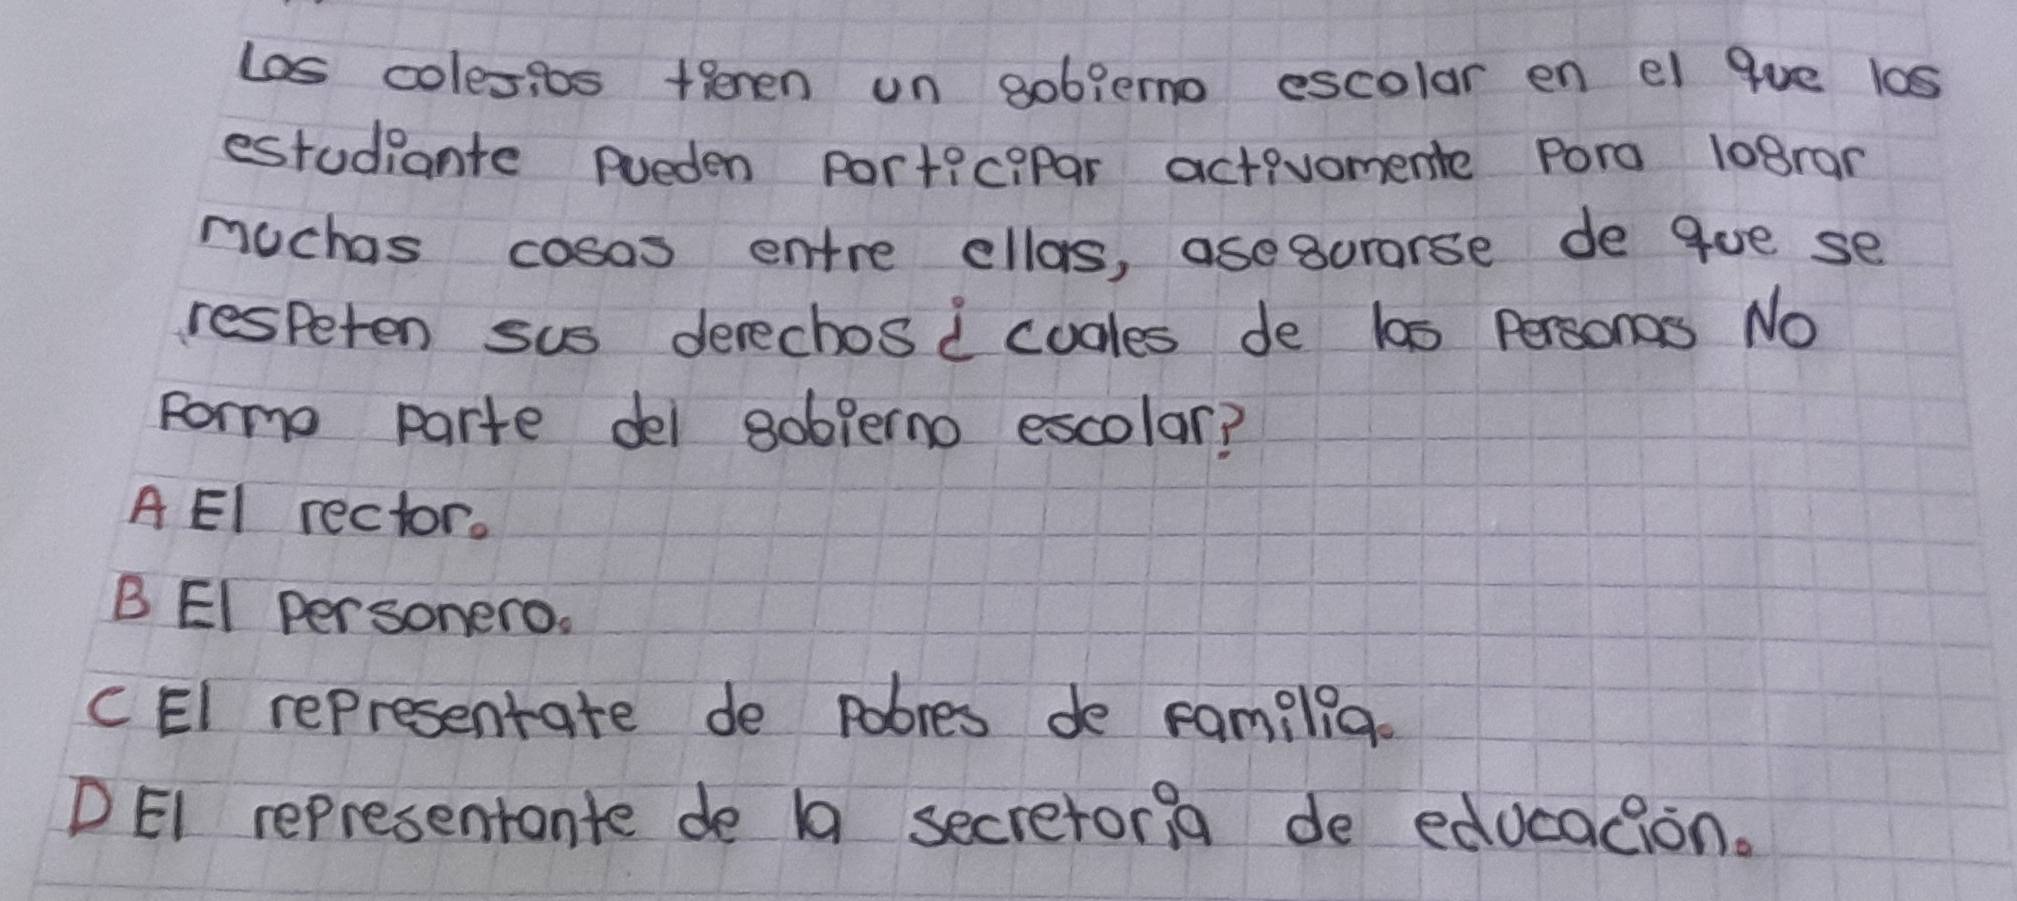 Los colegios tienen un gobierno escolar en el que los
estudiante pueden participar activamente para lograr
muchas cosas entre ellas, asegurarse de que se
respeten sus derechos ¿ cuales de las personas No
forma parte del gobierno escolar?
A El rector.
B El personero.
C El representate de padres de familia.
D El representante de la secretaria de educación.